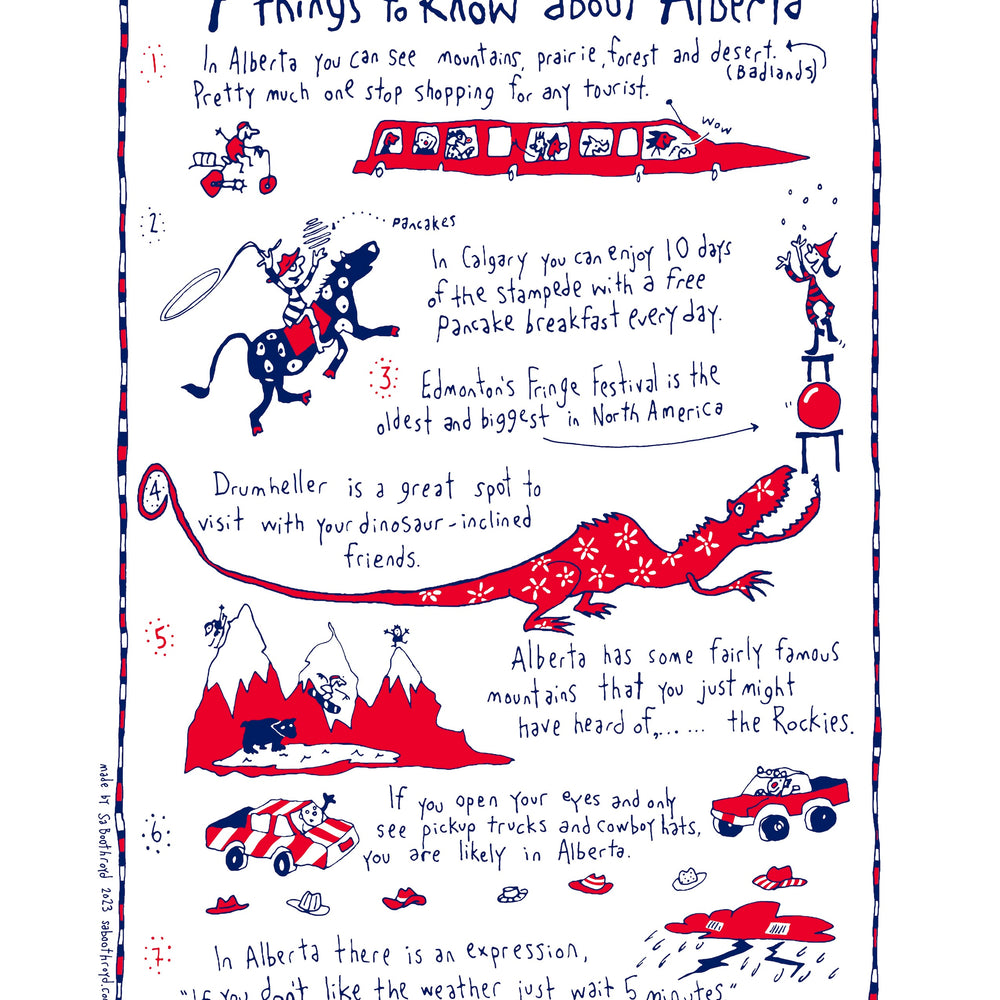 7 things to know about Alberta
1
In Alberta you can see mountains, prairie, forest and desert.
(Badlands)
Pretty much one stop shopping for any tourist.
wow
2
Pancakes
In Calgary you can enjoy 10 days
of the stampede with a free
pancake breakfast every day.
3
Edmonton's Fringe Festival is the
oldest and biggest in North America
4
Drumheller is a great spot to
visit with your dinosaur-inclined
friends.
5
Alberta has some fairly famous
mountains that you just might
have heard of,...... the Rockies.
6
If you open your eyes and only
see pickup trucks and cowboy hats,
you are likely in Alberta.
7
In Alberta there is an expression,
"If you don't like the weather just wait 5 minutes"
made by Sa Boothroyd 2023 saboothroyd.co